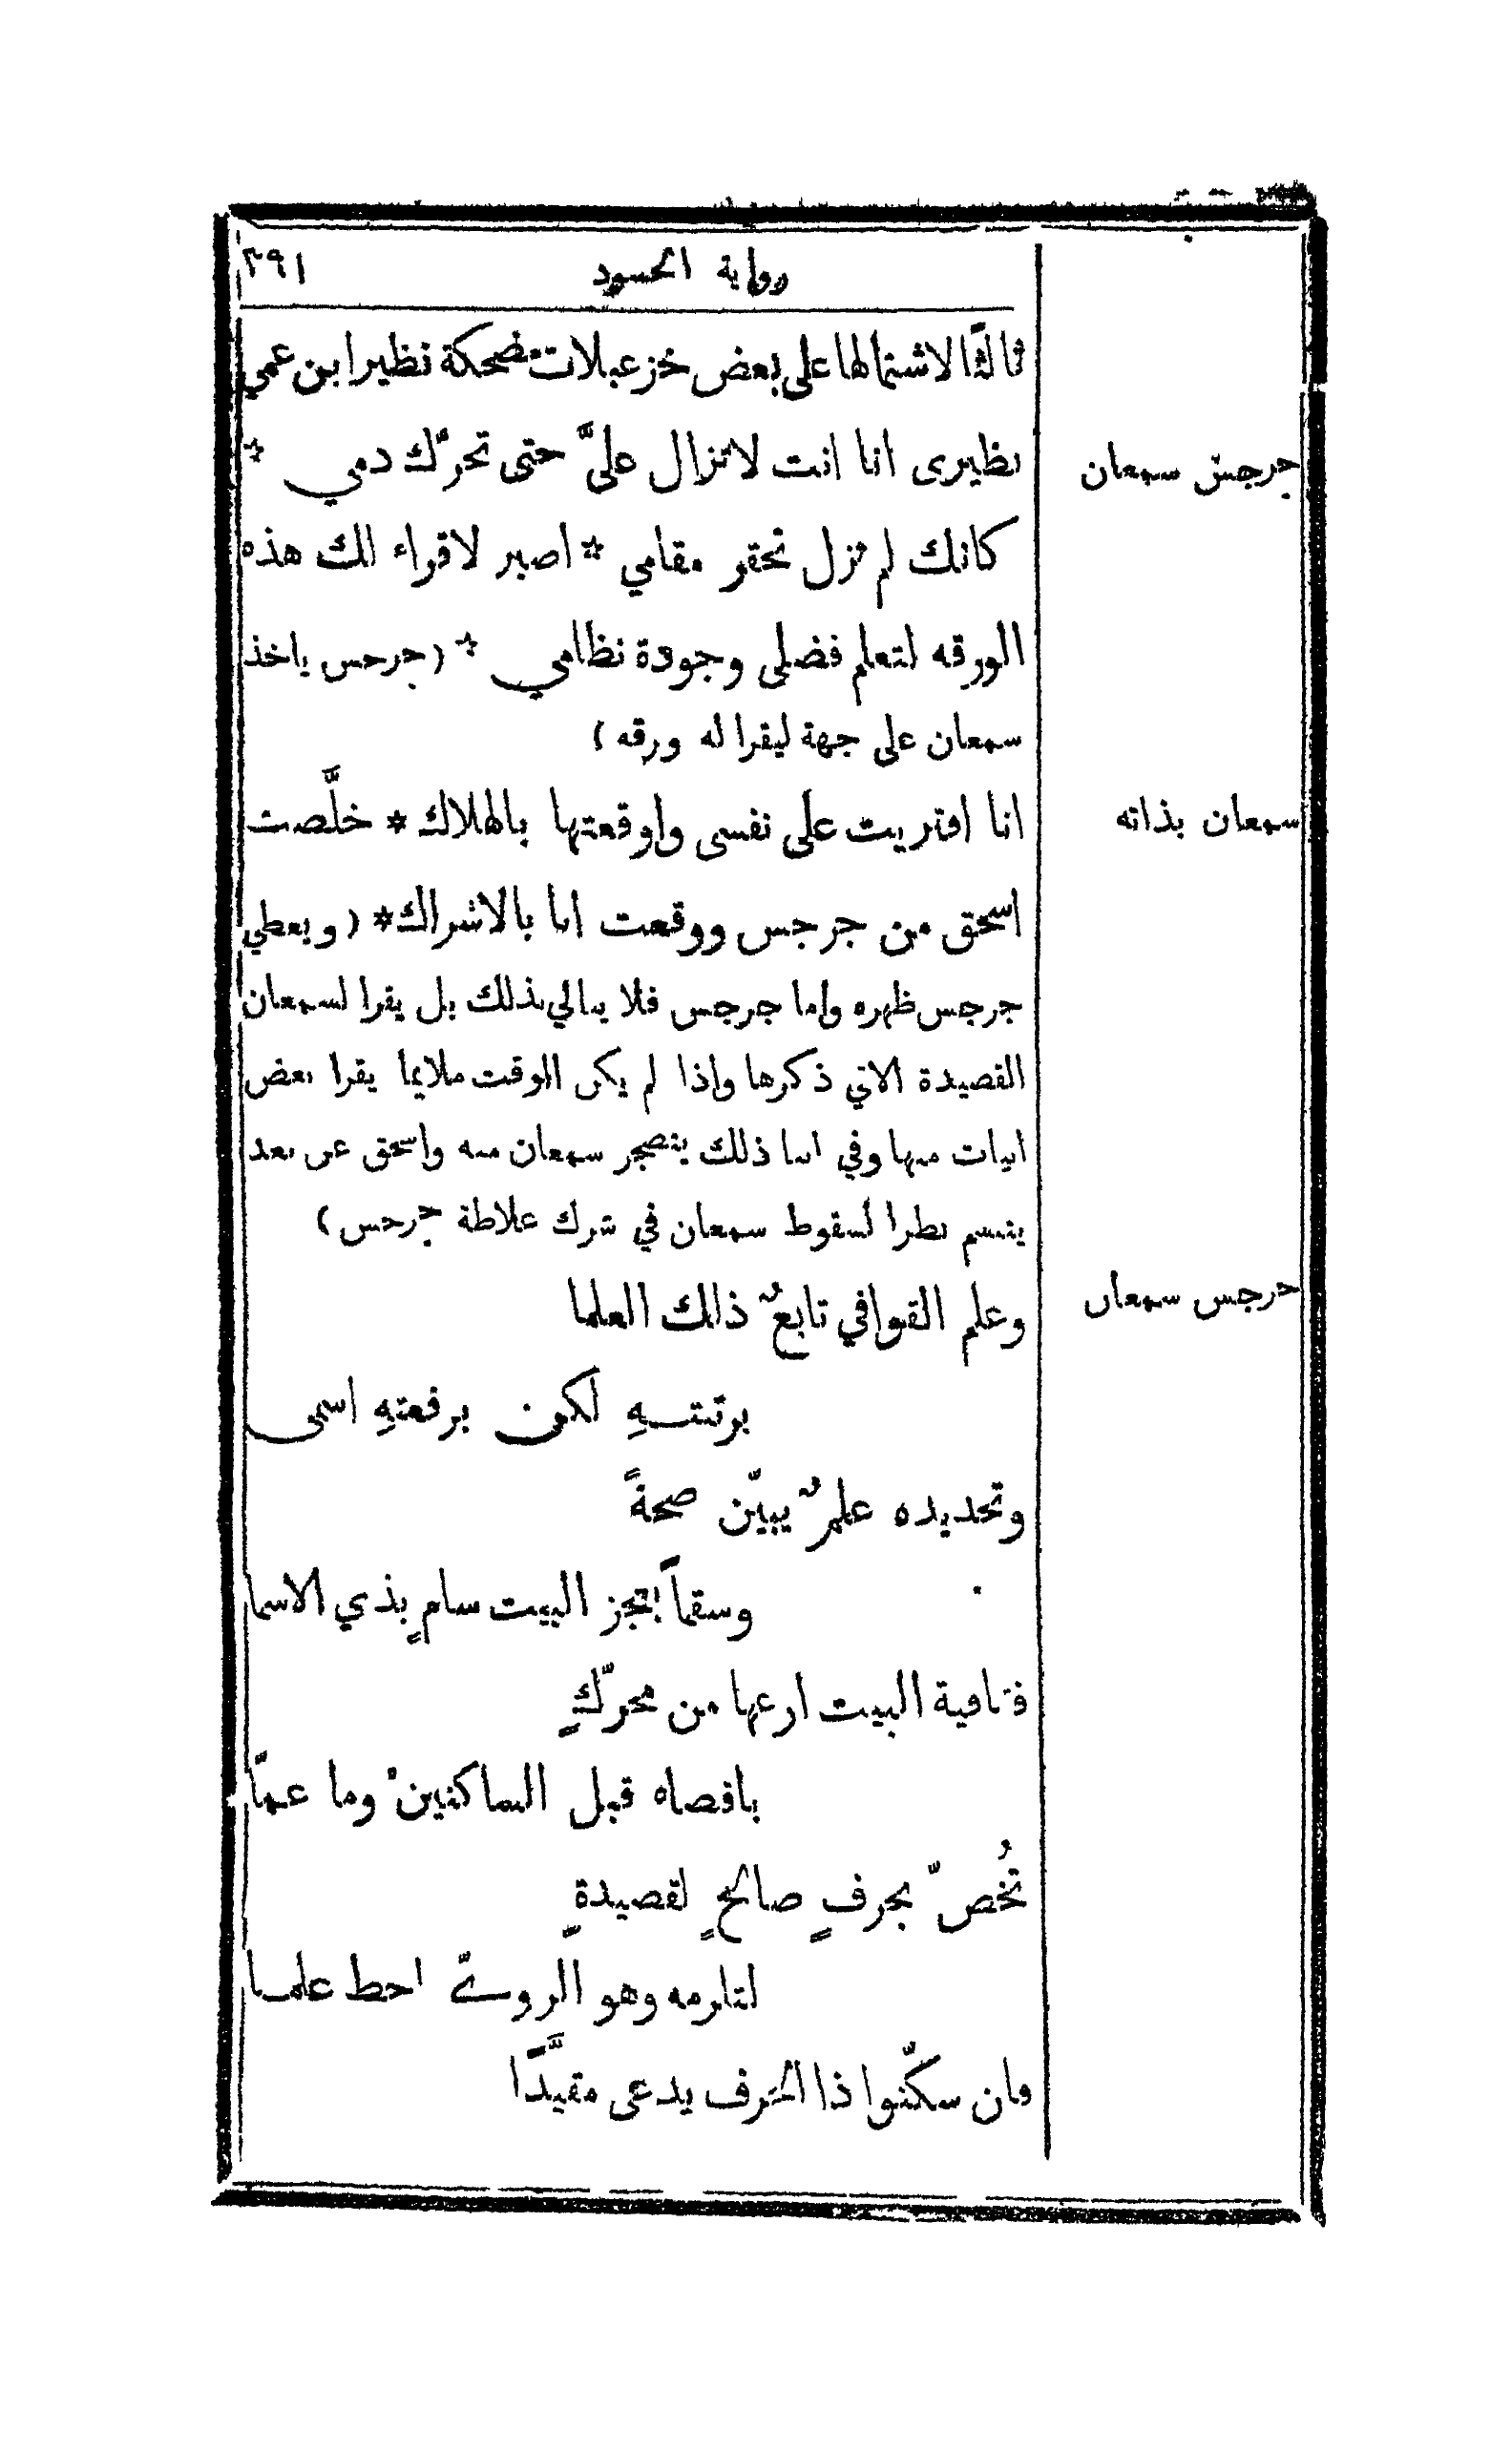 رواية الحسود ٢٩١
ثالثًا لاشتمالها على بعض خزعبلات مضحكة نظير ابن عمي
جرجس سمعان
نظيرى انا انت لا تزال عليَّ حتى تحرّك دمي *
كانك لم تزل تحقر مقامي * اصبر لاقراء لك هذه
الورقه لتعلم فضلى وجودة نظامي * (جرجس ياخذ
سمعان على جهة ليقرا له ورقه)
سمعان بذاته
انا افتريت على نفسى واوقعتها بالهلاك * خلَّصت
اسحق من جرجس ووقعت انا بالاشراك * (ويعطي
جرجس ظهره واما جرجس فلا يبالي بذلك بل يقرا لسمعان
القصيدة الاتي ذكرها واذا لم يكن الوقت ملايما يقرا بعض
ابيات منها وفي اثنا ذلك يتضجر سمعان منه واسحق عن بعد
يتبسم نظرا لسقوط سمعان في شرك علاطة جرجس)
جرجس سمعان
وعلم القوافي تابعٌ ذلك العلما
برتبتــهِ لكن برفعتهِ اسمى
وتحديده علمٌ يبيّن صحةً
وسقماً بعجز البيت سامٍ بذي الاسما
فقافية البيت ارعها من محرّكٍ
باقصاه قبل الساكنين وما عمّا
تُخصّ بحرفٍ صالحٍ لقصيدةٍ
لتلزمه وهو الرويّ احط علمــا
فان سكّنوا ذا الحرف يدعى مقيَّدًا